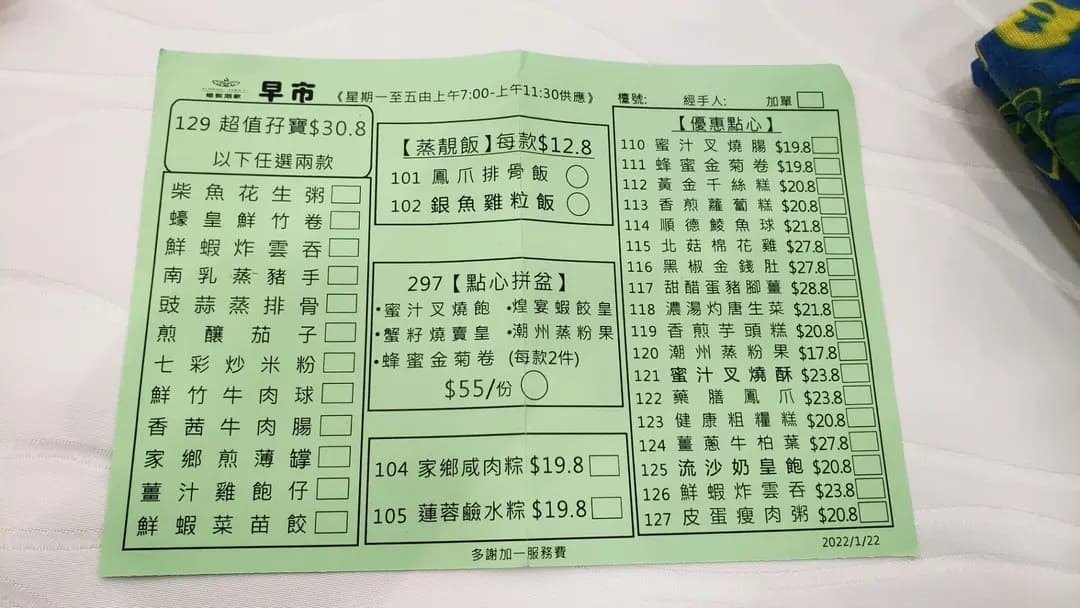 早市 《星期一至五由上午7:00-上午11:30供應》 檯號: 經手人: 加單
129 超值孖寶$30.8
以下任選兩款
柴魚花生粥
蠔皇鮮竹卷
鮮蝦炸雲吞
南乳蒸豬手
豉蒜蒸排骨
煎釀茄子
七彩炒米粉
鮮竹牛肉球
香茜牛肉腸
家鄉煎薄罉
薑汁雞飽仔
鮮蝦菜苗餃
【蒸靚飯】每款$12.8
101 鳳爪排骨飯
102 銀魚雞粒飯
297【點心拼盆】
•蜜汁叉燒飽 •煌宴蝦餃皇
•蟹籽燒賣皇 •潮州蒸粉果
•蜂蜜金菊卷 (每款2件)
$55/份
104 家鄉咸肉粽 $19.8
105 蓮蓉鹼水粽 $19.8
【優惠點心】
110 蜜汁叉燒腸 $19.8
111 蜂蜜金菊卷 $19.8
112 黃金千絲糕 $20.8
113 香煎蘿蔔糕 $20.8
114 順德鯪魚球 $21.8
115 北菇棉花雞 $27.8
116 黑椒金錢肚 $27.8
117 甜醋蛋豬腳薑 $28.8
118 濃湯灼唐生菜 $21.8
119 香煎芋頭糕 $20.8
120 潮州蒸粉果 $17.8
121 蜜汁叉燒酥 $23.8
122 藥膳鳳爪 $23.8
123 健康粗糧糕 $20.8
124 薑蔥牛柏葉 $27.8
125 流沙奶皇飽 $20.8
126 鮮蝦炸雲吞 $23.8
127 皮蛋瘦肉粥 $20.8
多謝加一服務費
2022/1/22